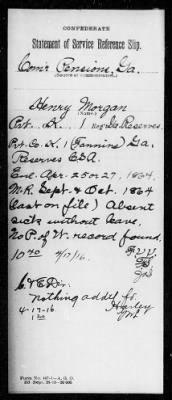 CONFEDERATE
Statement of Service Reference Slip.
Com'r Pensions, Ga.
(Source of communication.)
Henry Morgan
(Name.)
Pvt. K. 1 Reg't Ga Reserves
Pvt. Co. K 1 (Fannins) Ga.
Reserves C.S.A.
Enl. Apr. 25 or 27, 1864
M.R. Sept. & Oct. 1864
(last on file) Absent
sick without leave.
No P. of W. record found.
10 4/17/16.
Nothing addtl. fr.
4-17-16 Hurley